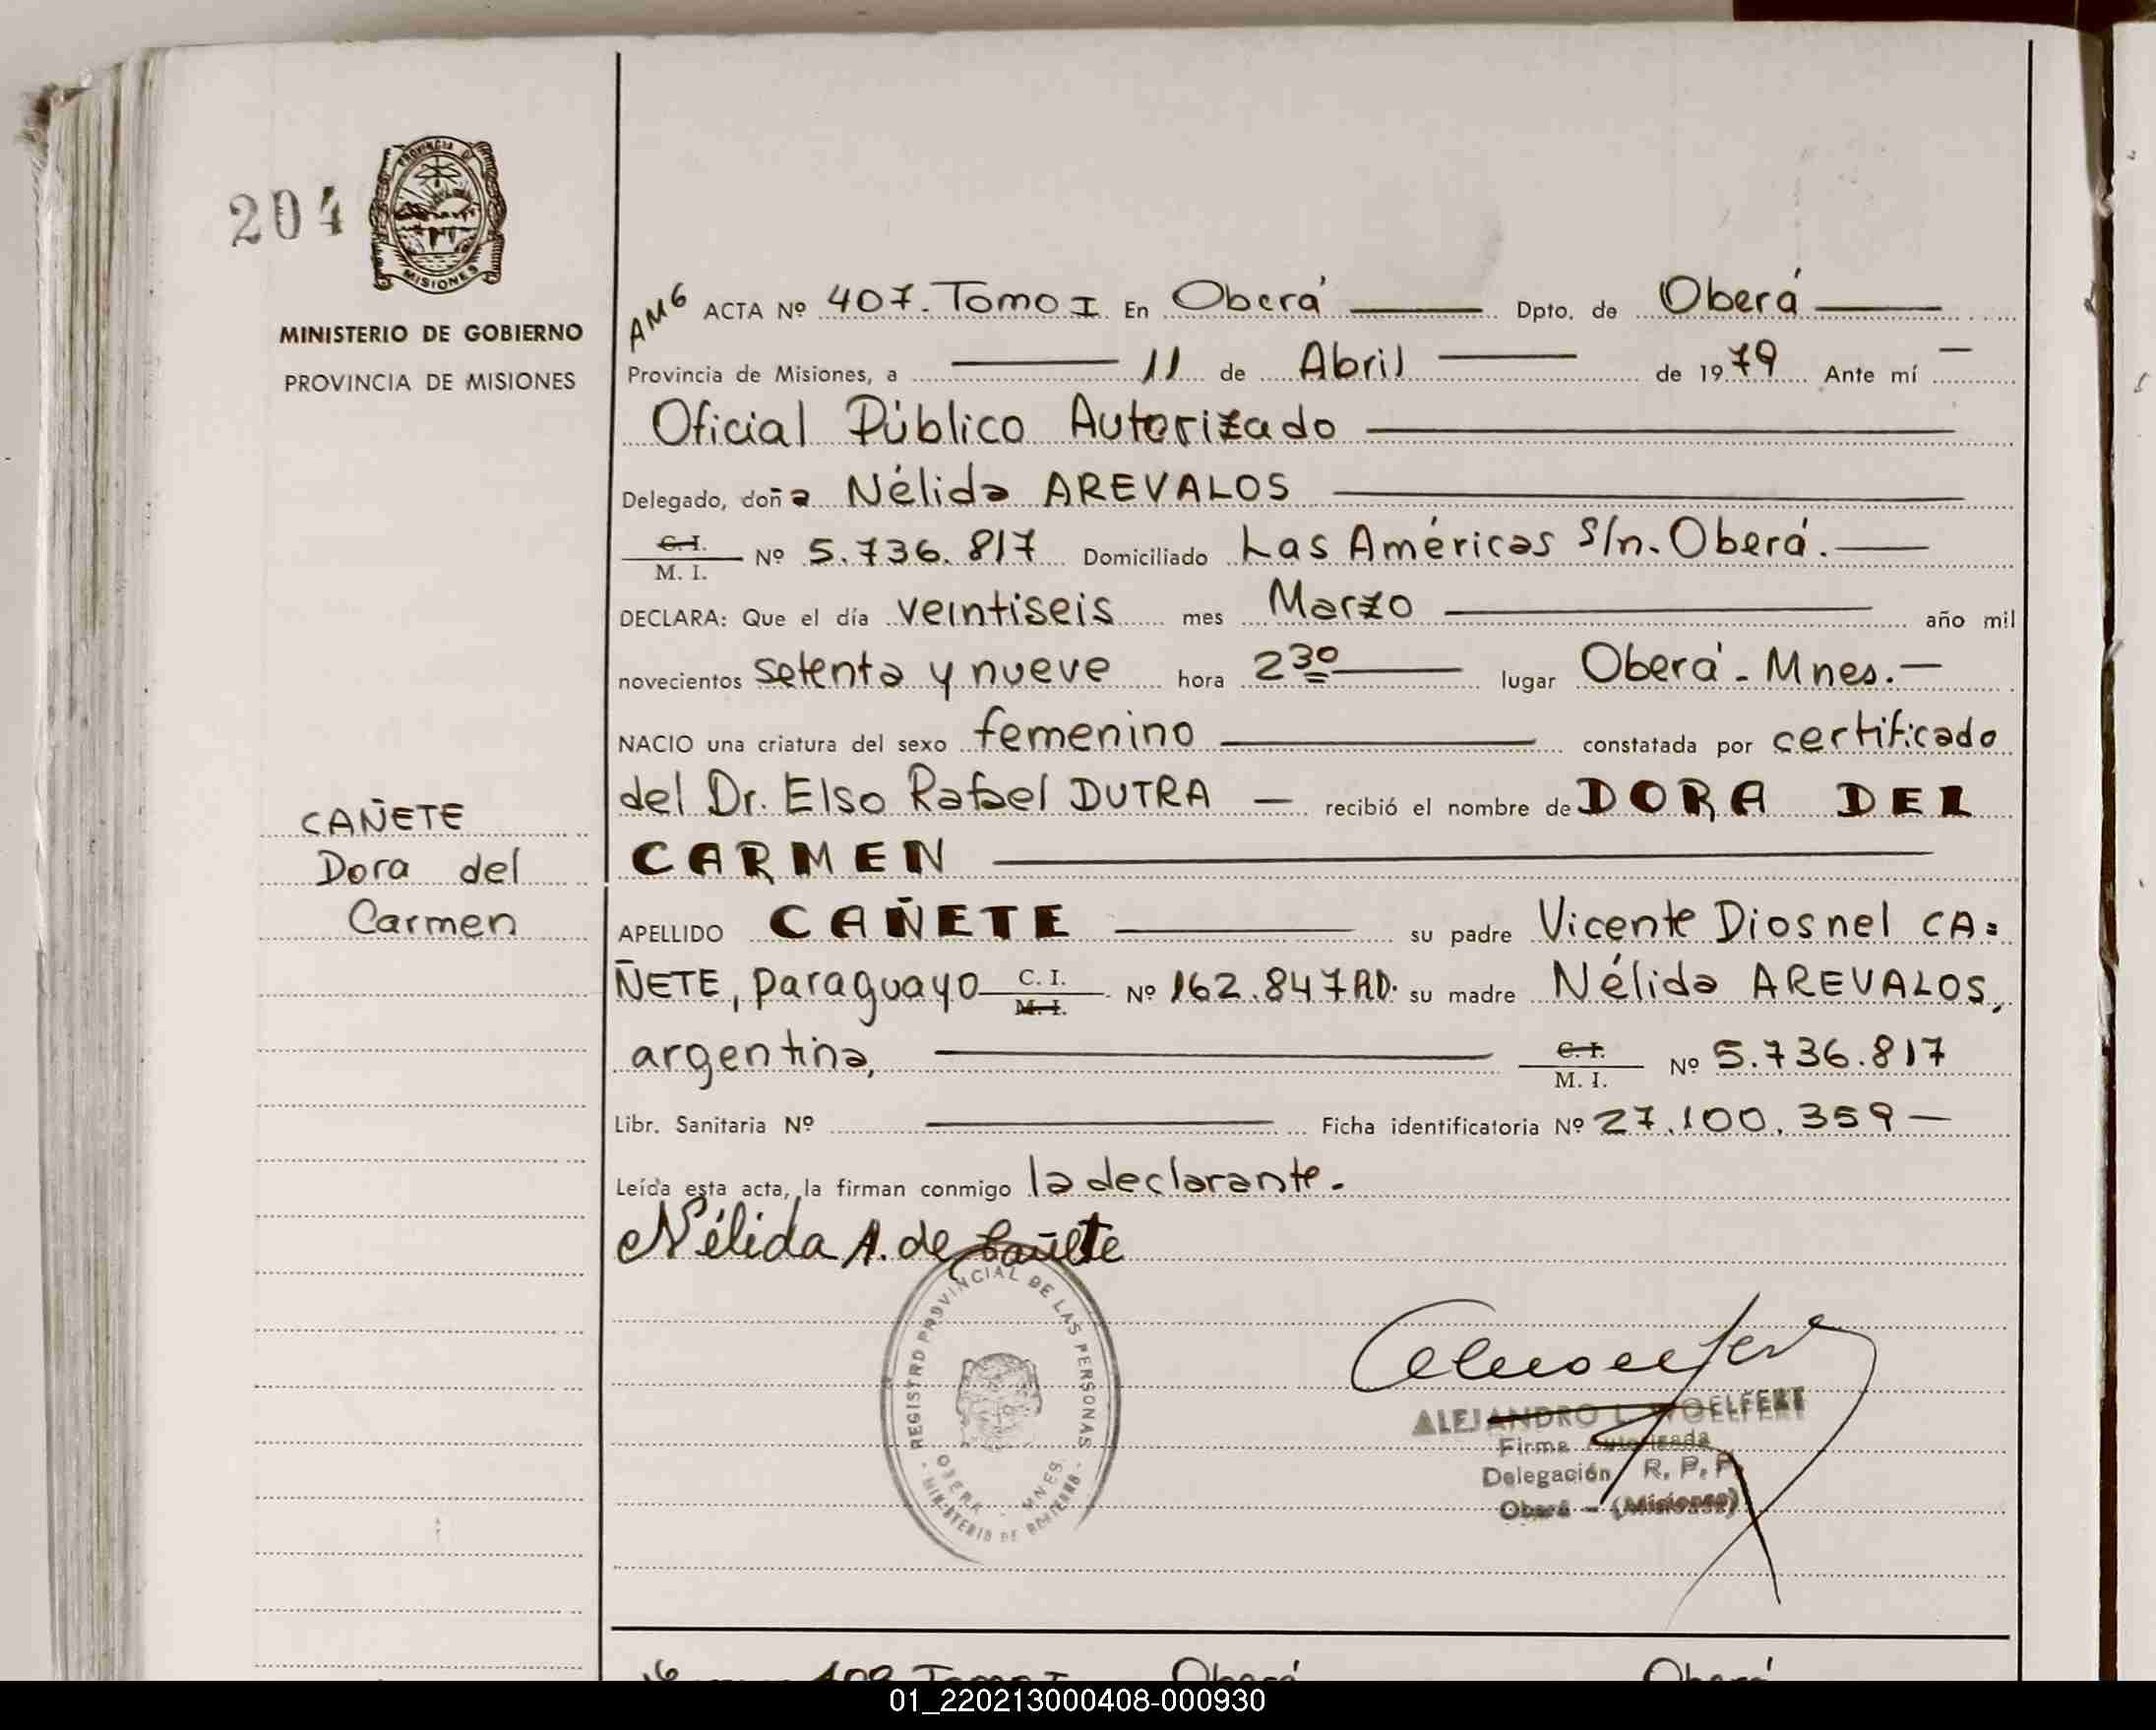 204
PROVINCIA DE
MISIONES
MINISTERIO DE GOBIERNO
PROVINCIA DE MISIONES
CAÑETE
Dora del
Carmen
AM6 ACTA Nº 407. Tomo I En Oberá Dpto. de Oberá
Provincia de Misiones, a 11 de Abril de 1979 Ante mí
Oficial Público Autorizado
Delegado, doña Nélida AREVALOS
C. I. / M. I. Nº 5.736.817 Domiciliado Las Américas s/n. Oberá.
DECLARA: Que el día veintiseis mes Marzo año mil
novecientos setenta y nueve hora 2 30 lugar Oberá - Mnes.
NACIO una criatura del sexo femenino constatada por certificado
del Dr. Elso Rafael DUTRA — recibió el nombre de DORA DEL
CARMEN
APELLIDO CAÑETE su padre Vicente Diosnel CA=
ÑETE, paraguayo C. I. / M. I. Nº 162.847 RD. su madre Nélida AREVALOS,
argentina, C. I. / M. I. Nº 5.736.817
Libr. Sanitaria Nº Ficha identificatoria Nº 27.100.359 —
Leída esta acta, la firman conmigo la declarante.
Nélida A. de Cañete
REGISTRO PROVINCIAL DE LAS PERSONAS
OBERA - MNES.
- MINISTERIO DE GOBIERNO -
ALEJANDRO L. WOELFERT
Firma Autorizada
Delegación R. P. P.
Oberá - (Misiones)
409 Tomo I Oberá Oberá
01_220213000408-000930